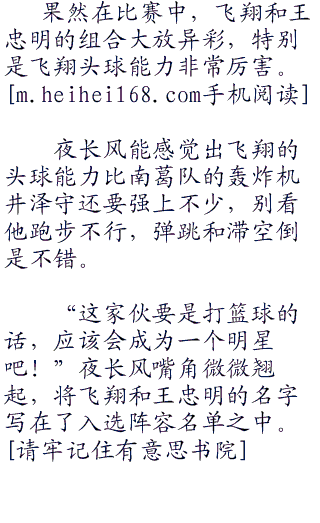 果然在比赛中，飞翔和王
忠明的组合大放异彩，特别
是飞翔头球能力非常厉害。
[m.heihei168.com手机阅读]
夜长风能感觉出飞翔的
头球能力比南葛队的轰炸机
井泽守还要强上不少，别看
他跑步不行，弹跳和滞空倒
是不错。
“这家伙要是打篮球的
话，应该会成为一个明星
吧！”夜长风嘴角微微翘
起，将飞翔和王忠明的名字
写在了入选阵容名单之中。
[请牢记住有意思书院]